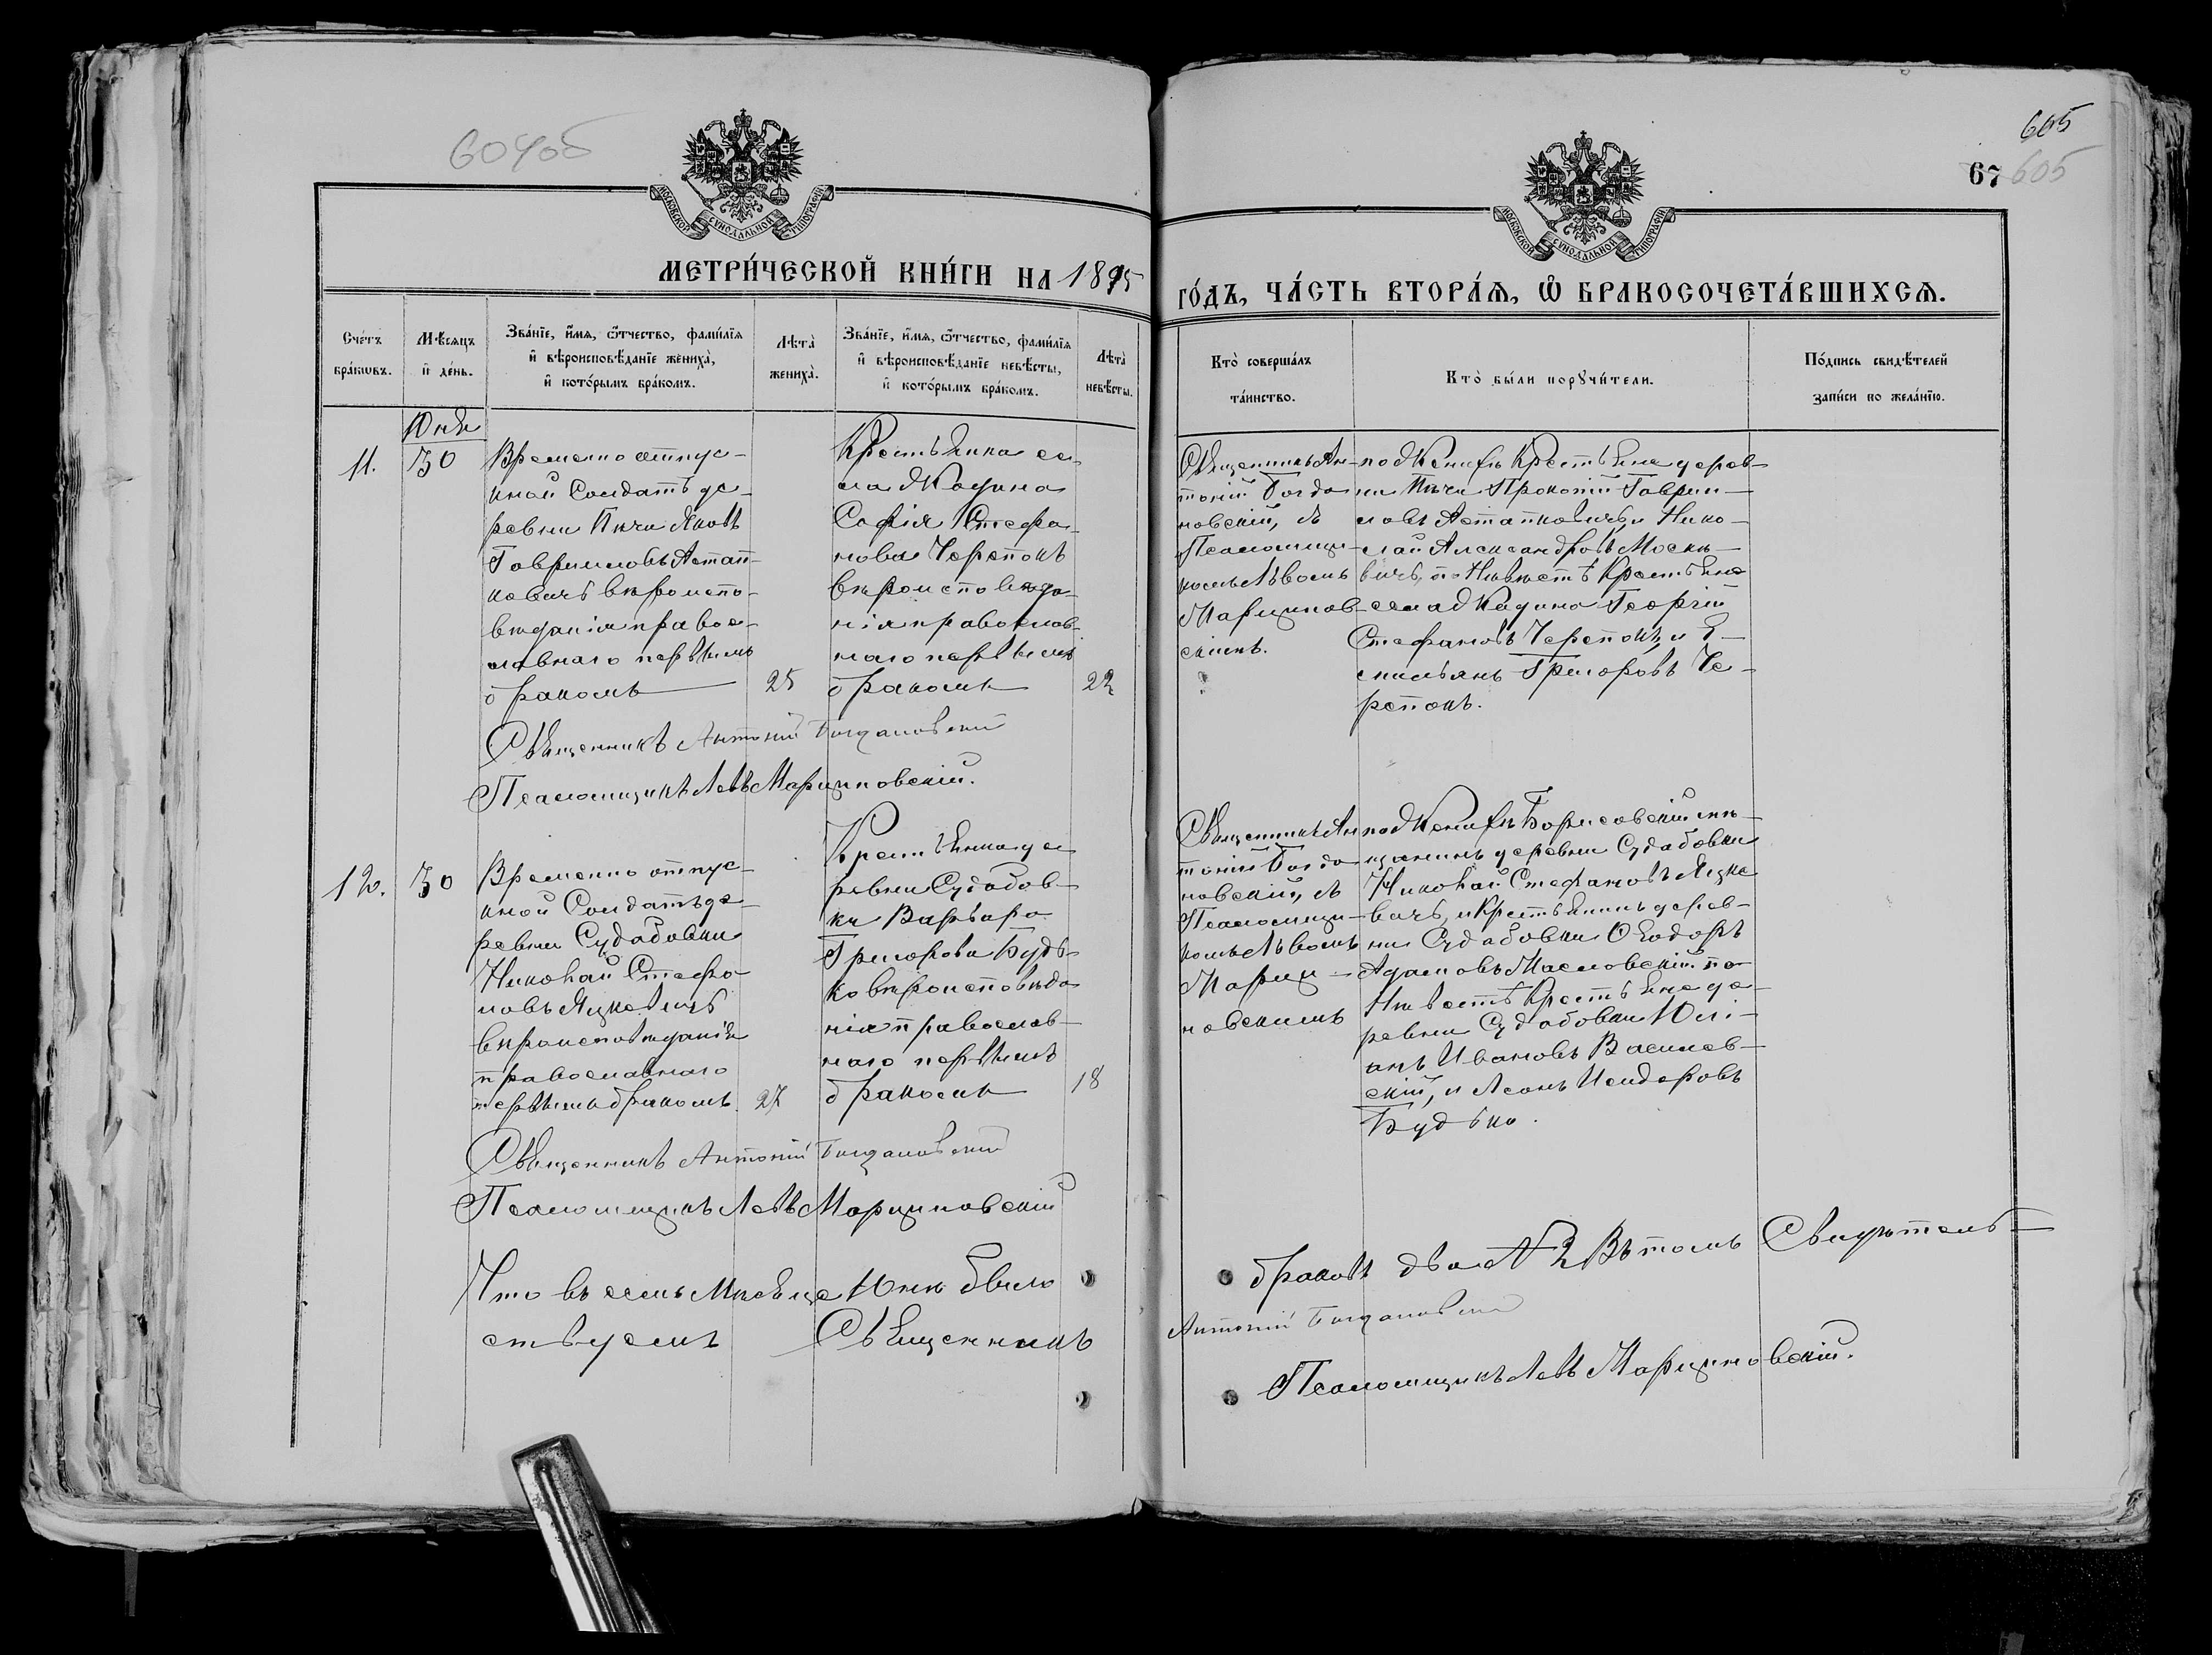 604об
605
67 605
МОСКОВСКОЙ СѴНОДАЛЬНОЙ ТИПОГРАФІИ
МОСКОВСКОЙ СѴНОДАЛЬНОЙ ТИПОГРАФІИ
МЕТРИ́ЧЕСКОЙ КНИ́ГИ НА 1895
ГО́ДЪ, ЧА́СТЬ ВТОРА́Ѧ, Ѿ БРАКОСОЧЕТА́ВШИХСѦ.
Сче́тъ
бра́кѡвъ.
Мѣ́сяцъ
и҆ де́нь.
Зва́нїе, и҆́мѧ, ѻ҆́тчество, фамѝлїѧ
и҆ вѣроисповѣ́данїе жениха̀,
и҆ кото́рымъ бра́комъ.
Лѣта̀
жениха̀.
Зва́нїе, и҆́мѧ, ѻ҆́тчество, фамѝлїѧ
и҆ вѣроисповѣ́данїе невѣ́сты,
и҆ кото́рымъ бра́комъ.
Лѣта̀
невѣ́сты.
Кто̀ соверша́лъ
та́инство.
Кто̀ бы́ли порꙋчи́тели.
По́дпись свидѣ́телей
за́писи по жела́нїю.
Юня
11.
30
Временно отпус-
кной Солдатъ де-
ревни Пячи Яковъ
Гавриловъ Астап-
ковичъ вѣроиспо-
вѣданія правос-
лавнаго первымъ
бракомъ
25
Крестьянка се-
ла Жодино
Софія Стефа-
нова Черепокъ
вѣроисповѣда-
нія православ-
наго первымъ
бракомъ
22
Священникъ Ан-
тоній Богда-
новскій, съ
Псаломщи-
комъ Львомъ
Марцинов-
скимъ.
по Женихѣ Крестьяне дерев-
ни Пячи Прокопій Гаври-
ловъ Астапковичъ, и Нико-
лай Александровъ Моске-
вичъ, по Невѣстѣ Крестьяне
села Жодино Георгій
Стефановъ Черепокъ, и Е-
мильянъ Григоровъ Че-
репокъ.
Священникъ Антоній Богдановскій
Псаломщикъ Левъ Марциновскій.
12.
30
Временно отпус-
кной Солдатъ де-
ревни Судобовки
Николай Стефа-
новъ Яцкевичъ
вѣроисповѣданія
православнаго
первымъ бракомъ.
27
Крестьянка де
ревни Судобов-
ки Варвара
Григорова Будь-
ко вѣроисповѣда
нія православ-
наго первымъ
бракомъ
18
Священникъ Ан
тоній Богда
новскій, съ
Псаломщи-
комъ Львомъ
Марци-
новскимъ
по Женихѣ Борисовскій мѣ-
щанинъ деревни Судобовки
Николай Стефановъ Яцке
вичъ, и Крестьянинъ дерев-
ни Судобовки Ѳеодоръ
Адамовъ Масловскій. по
Невѣстѣ Крестьяне де-
ревни Судобовки Юлі-
анъ Ивановъ Василев-
скій, и Леонъ Исидоровъ
Будько.
Священникъ Антоній Богдановскій
Псаломщикъ Левъ Марциновскій
Что въ семъ Мѣсяцѣ Юнѣ было браковъ два № 2 Въ томъ Свидѣтель-
ствуемъ Священникъ Антоній Богдановскій
Псаломщикъ Левъ Марциновскій.